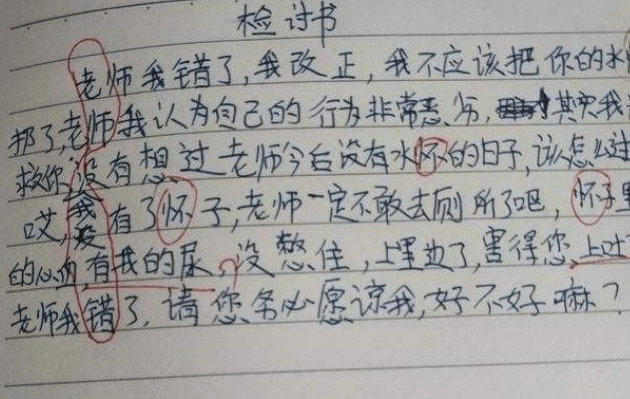 检讨书
老师我错了,我改正,我不应该把你的水
挪了,老师我认为自己的行为非常恶劣,其实我
救你,没有想过老师今后没有水怀的日子,该怎么过
哎,我没有了怀子,老师一定不敢去厕所了吧,怀子里
的心血,有我的尿,没憋住,上里边了,害得您上吐
老师我错了,请您务必愿谅我,好不好嘛?